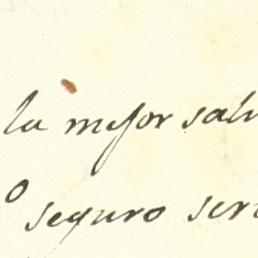 la mejor salu
º seguro serv